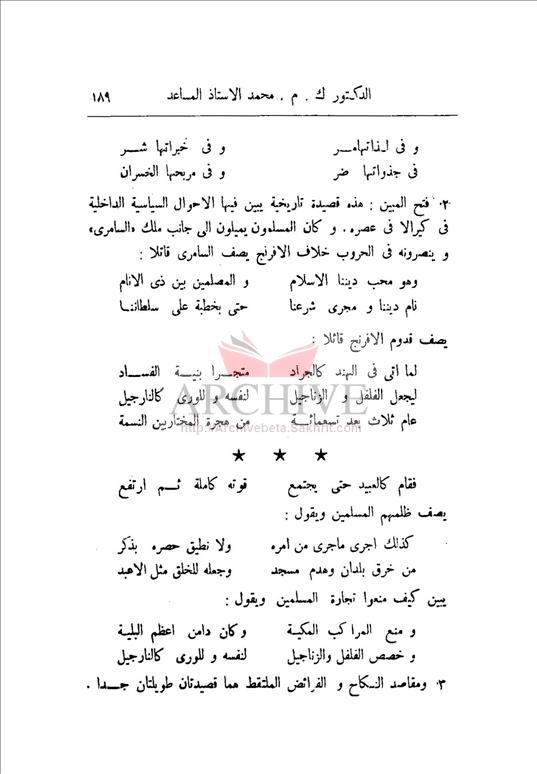 الدكتور ك . م . محمد الاستاذ المساعد ١٨٩
و فى لذاتهامـر و فى خبراتها شـر
فى جذواتها ضر و فى مربحها الخسران
٢. فتح المبين : هذه قصيدة تاريخية يبين فيها الاحوال السياسية الداخلية
فى كيرالا فى عصره. و كان المسلمون يميلون الى جانب ملك «السامرى»
و ينصرونه فى الحروب خلاف الافرنج يصف السامرى قائلا :
وهو محب ديننا الاسلام و المصلمين بين ذى الانام
نام ديننا و مجرى شرعنا حتى بخطبة على سلطاننا
يصف قدوم الافرنج قائلا :
لما اتى فى الهند كالجراد متجرا بنية الفساد
ليجعل الفلفل و الزناجيل لنفسه و للورى كالنارجيل
عام ثلاث بعد تسعمائة من هجرة المختاربن النسمة
ARCHIVE
http://Archivebeta.Sakhrit.com
★ ★ ★
فقام كالعبيد حتى يجتمع قوته كاملة ثم ارتفع
يصف ظلمهم المسلمين ويقول :
كذلك اجرى ماجرى من امره ولا نطيق حصره بذكر
من خرق بلدان وهدم مسجد وجعله للخلق مثل الاهبد
يبين كيف منعوا تجارة المسلمين ويقول :
و منع المراكب المكية وكان دامن اعظم البلية
و خصص الفلفل والزناجيل لنفسه و للورى كالنارجيل
٣. ومقاصد النكاح و الفرائض الملتقط هما قصيدتان طويلتان جدا .